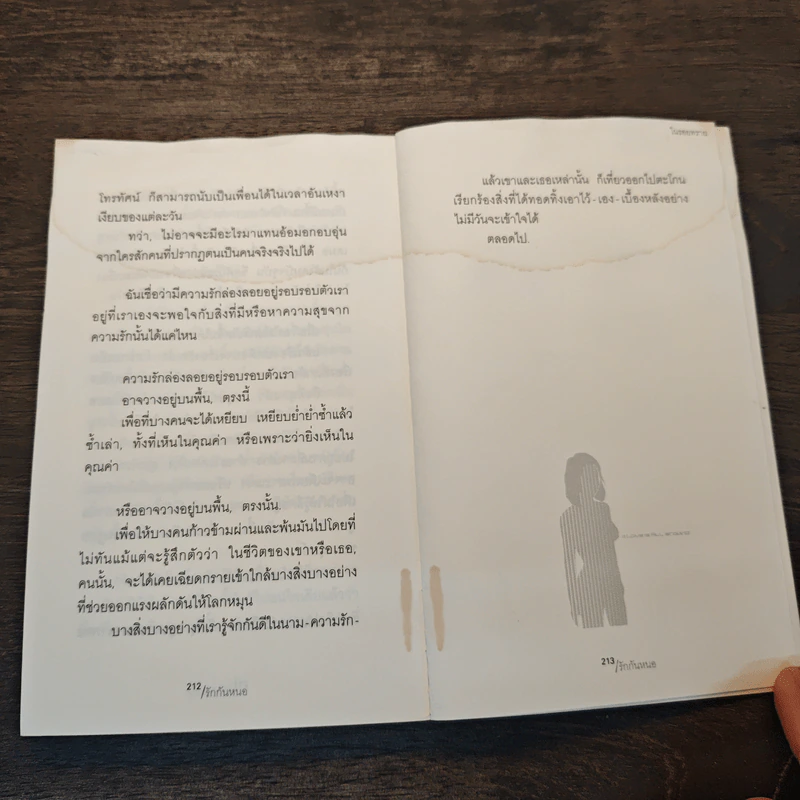 โทรทัศน์ ก็สามารถนับเป็นเพื่อนได้ในเวลาอันเหงา
เงียบของแต่ละวัน
ทว่า, ไม่อาจจะมีอะไรมาแทนอ้อมอกอบอุ่น
จากใครสักคนที่ปรากฏตนเป็นคนจริงจริงไปได้
ฉันเชื่อว่ามีความรักล่องลอยอยู่รอบรอบตัวเรา
อยู่ที่เราเองจะพอใจกับสิ่งที่มีหรือหาความสุขจาก
ความรักนั้นได้แค่ไหน
ความรักล่องลอยอยู่รอบรอบตัวเรา
อาจวางอยู่บนพื้น, ตรงนี้
เพื่อที่บางคนจะได้เหยียบ เหยียบย่ำย่ำซ้ำแล้ว
ซ้ำเล่า, ทั้งที่เห็นในคุณค่า หรือเพราะว่ายิ่งเห็นใน
คุณค่า
หรืออาจวางอยู่บนพื้น, ตรงนั้น.
เพื่อให้บางคนก้าวข้ามผ่านและพ้นมันไปโดยที่
ไม่ทันแม้แต่จะรู้สึกตัวว่า ในชีวิตของเขาหรือเธอ,
คนนั้น, จะได้เคยเฉียดกรายเข้าใกล้บางสิ่งบางอย่าง
ที่ช่วยออกแรงผลักดันให้โลกหมุน
บางสิ่งบางอย่างที่เรารู้จักกันดีในนาม-ความรัก-
212/รักกันหนอ
ในรอยทราย
แล้วเขาและเธอเหล่านั้น ก็เที่ยวออกไปตะโกน
เรียกร้องสิ่งที่ได้ทอดทิ้งเอาไว้-เอง-เบื้องหลังอย่าง
ไม่มีวันจะเข้าใจได้
ตลอดไป.
213/รักกันหนอ